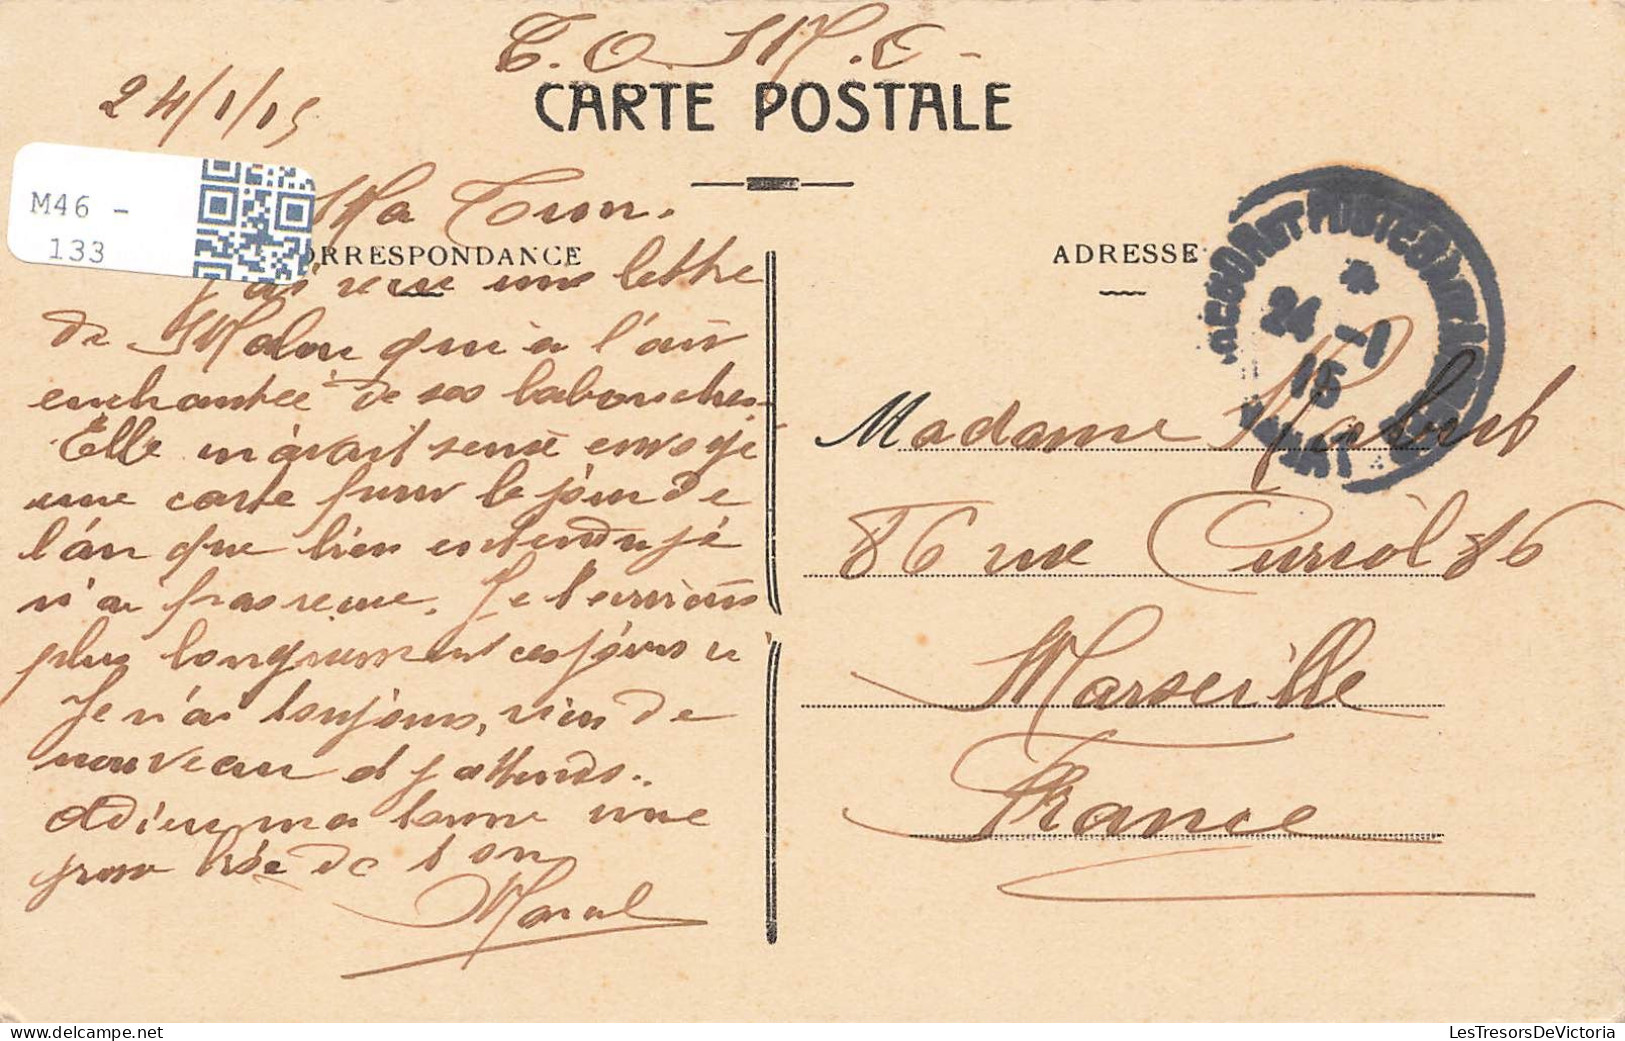 T. O. M. C -
CARTE POSTALE
24/1/15
M46 -
133
Ma
ORRESPONDANCE
J'ai reçu une lettre
de qui a l'air
enchantée de ses
Elle m'avait envoyé
une carte pour le jour de
l'an que bien entendu je
n'ai pas reçue. Je t'écrirais
plus longuement ces jours ci
Je n'ai toujours, rien de
nouveau et j'attends.
Adieu ma bonne une
grosse bise de ton
ADRESSE
24 -1
15
Madame
86 rue Curiol 86
Marseille
France
LesTresorsDeVictoria